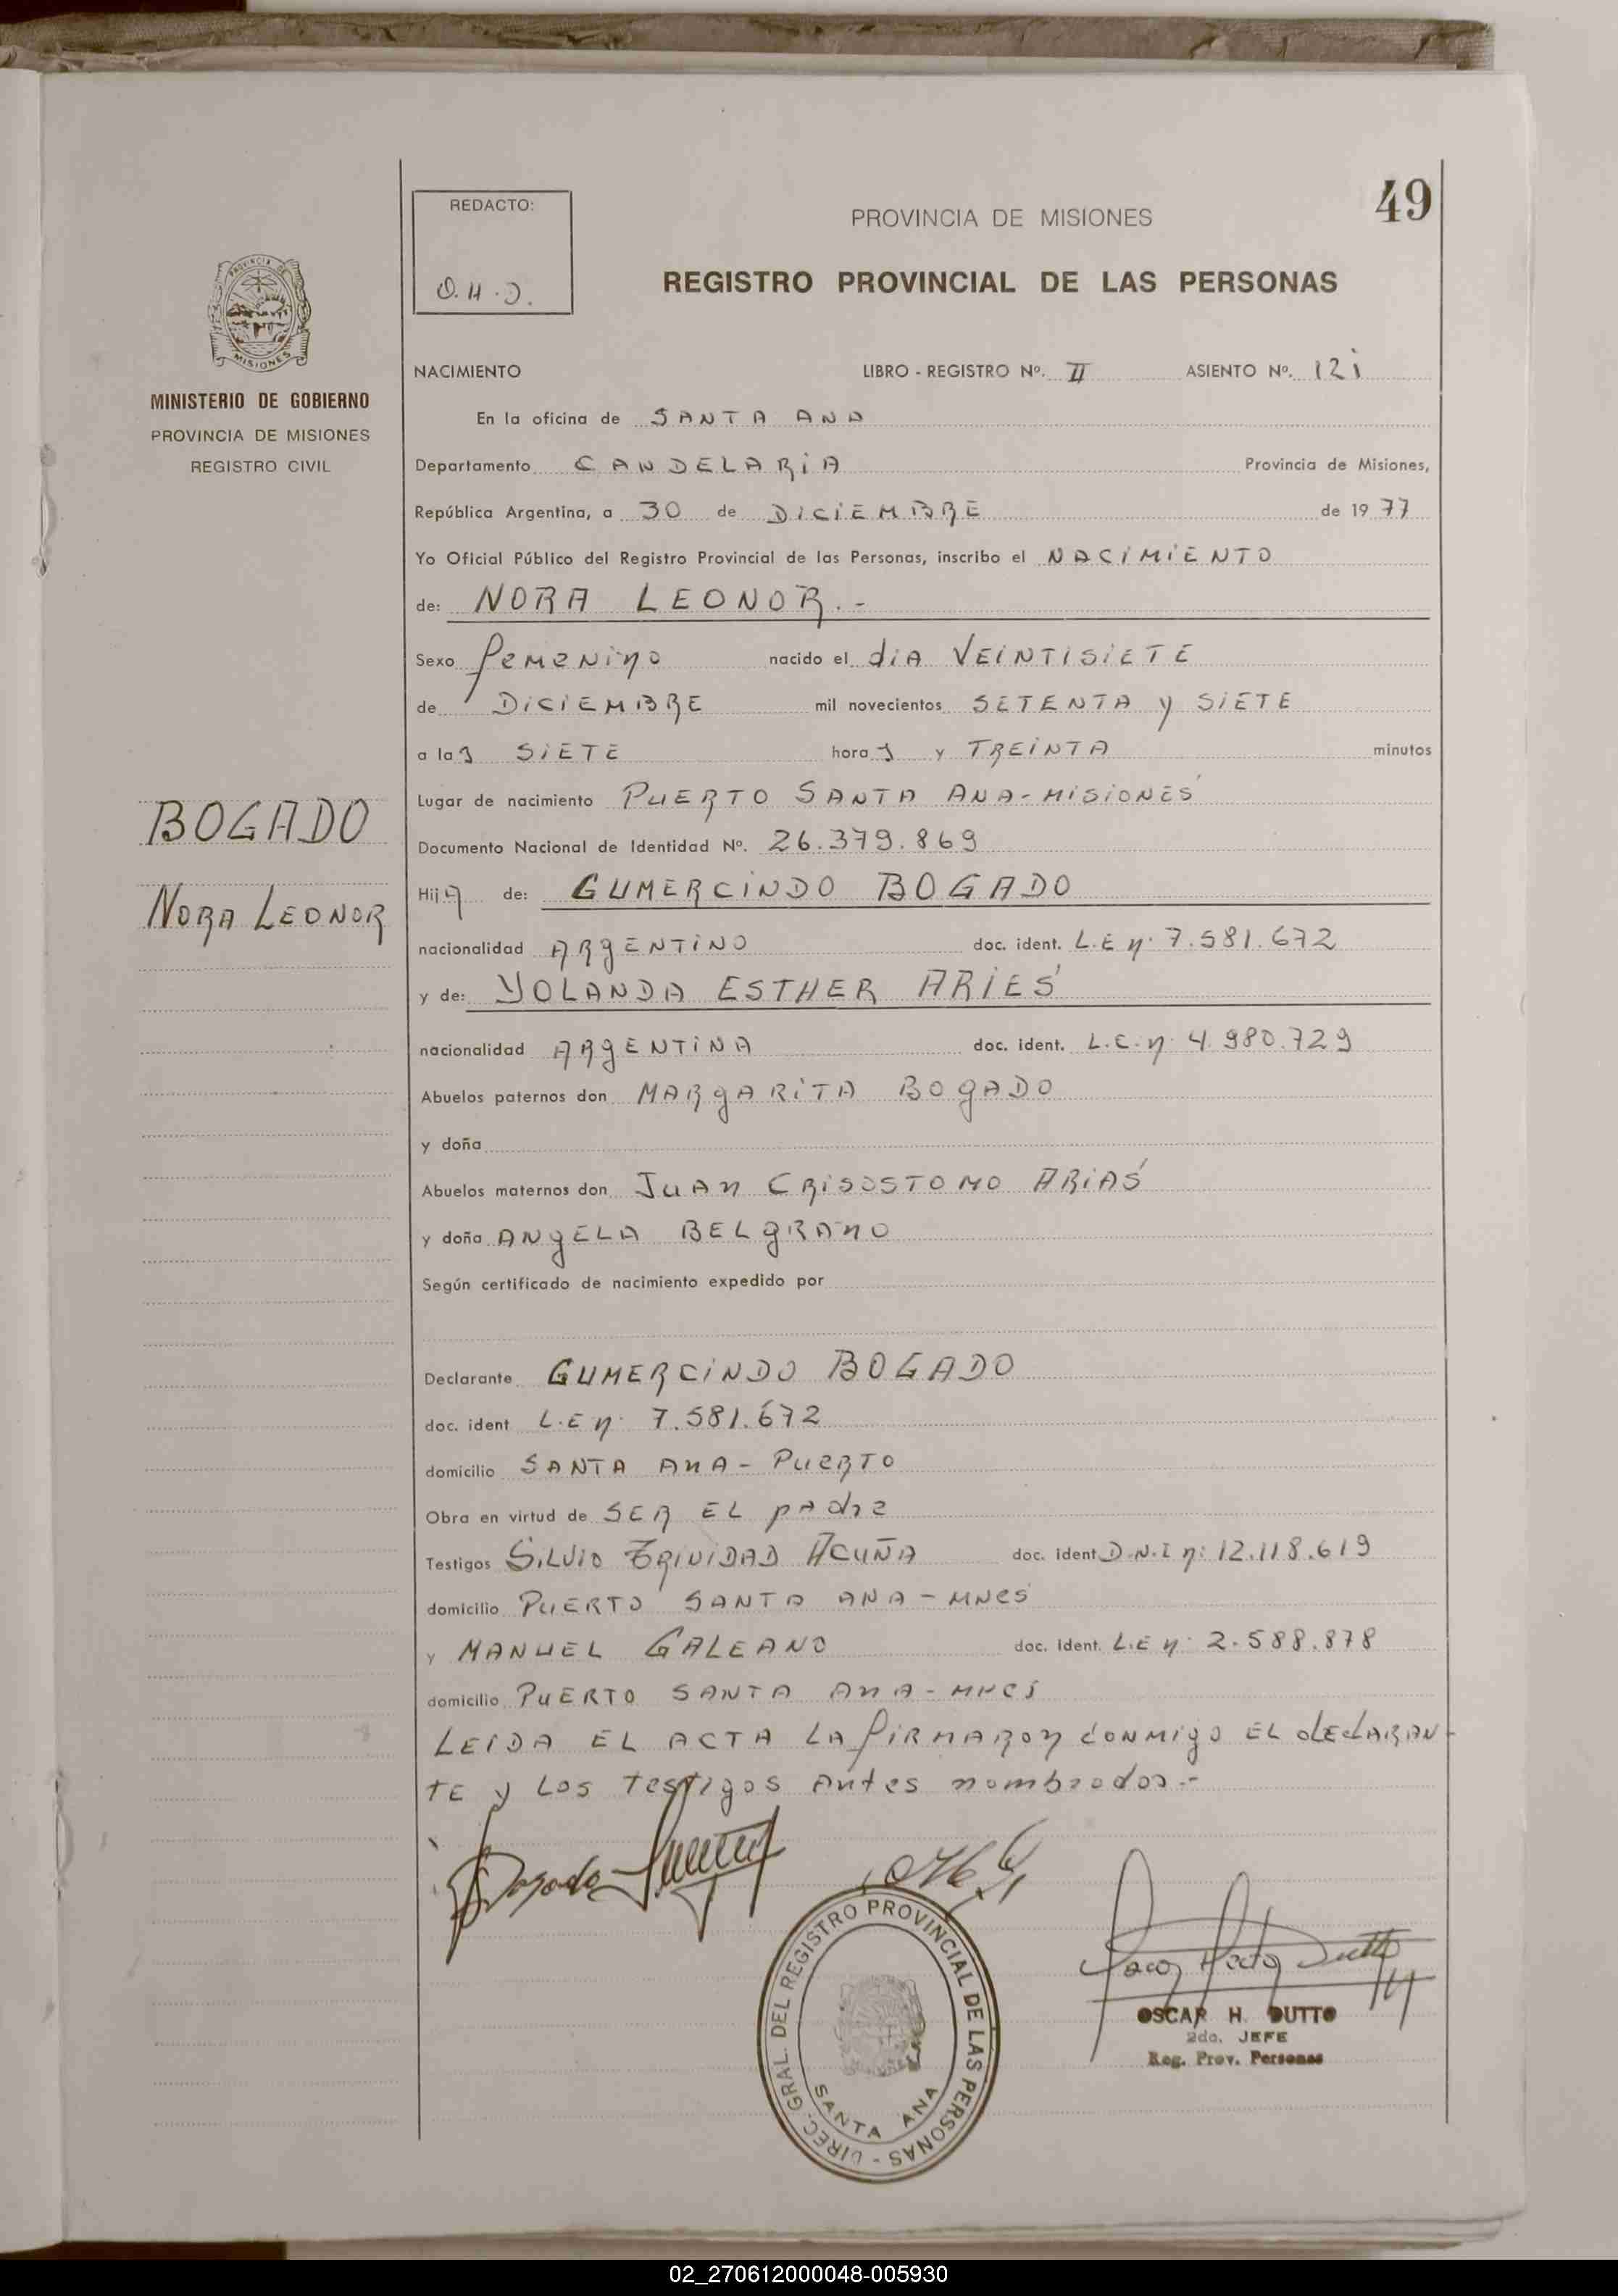 49
REDACTO:
O.H.D.
PROVINCIA DE MISIONES
REGISTRO PROVINCIAL DE LAS PERSONAS
PROVINCIA DE
MISIONES
MINISTERIO DE GOBIERNO
PROVINCIA DE MISIONES
REGISTRO CIVIL
NACIMIENTO LIBRO - REGISTRO Nº. II ASIENTO Nº. 121
En la oficina de SANTA ANA
Departamento CANDELARIA Provincia de Misiones,
República Argentina, a 30 de DICIEMBRE de 1977
Yo Oficial Público del Registro Provincial de las Personas, inscribo el NACIMIENTO
de: NORA LEONOR.-
Sexo femenino nacido el dia VEINTISIETE
de DICIEMBRE mil novecientos SETENTA y SIETE
a las SIETE horas y TREINTA minutos
Lugar de nacimiento PUERTO SANTA ANA-MISIONES
BOGADO
NORA LEONOR
Documento Nacional de Identidad Nº. 26.379.869
Hija de: GUMERCINDO BOGADO
nacionalidad ARGENTINO doc. ident. L.E nº 7.581.672
y de: YOLANDA ESTHER ARIES
nacionalidad ARGENTINA doc. ident. L.C. nº 4.980.729
Abuelos paternos don MARGARITA BOGADO
y doña
Abuelos maternos don JUAN CRISOSTOMO ARIAS
y doña ANGELA BELGRANO
Según certificado de nacimiento expedido por
Declarante GUMERCINDO BOGADO
doc. ident L.E nº 7.581.672
domicilio SANTA ANA - PUERTO
Obra en virtud de SER EL padre
Testigos SILVIO TRINIDAD ACUÑA doc. ident D.N.I nº: 12.118.619
domicilio PUERTO SANTA ANA - MNES
y MANUEL GALEANO doc. ident. L.E nº 2.588.878
domicilio PUERTO SANTA ANA - MNES
LEIDA EL ACTA LA FIRMARON CONMIGO EL dECLARAN-
TE y LOS TESTIGOS Antes nombrados.-
Bogado
Oscar Hector Dutto
OSCAR H. DUTTO
2do. JEFE
Reg. Prov. Personas
DIREC. GRAL. DEL REGISTRO PROVINCIAL DE LAS PERSONAS -
SANTA ANA
02_270612000048-005930